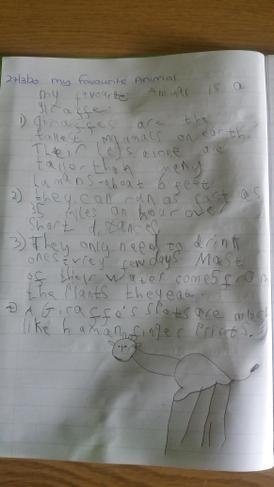 27/3/20 my favourite Animal
my favourite Animal is a
giraffe
1) giraffes are the
tallest mamals on earth.
Their legs alone are
taller than meny
humans about 6 feet
2) they can run as fast as
35 miles an hour over
short distances
3) They only need to drink
once every few days Most
of their water comes from
the Plants they eat.
A Giraffe's spots are much
like human finger prints.